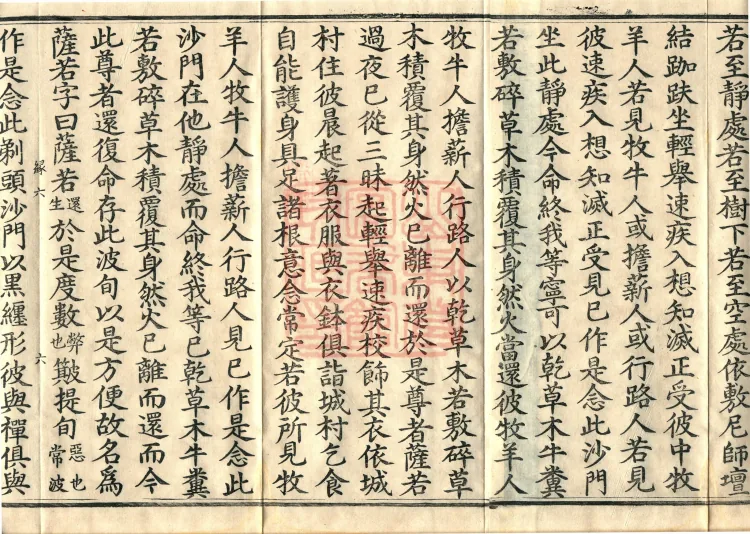 若至靜處若至樹下若至空處依敷尼師壇
結跏趺坐輕舉速疾入想知滅正受彼中牧
羊人若見牧牛人或擔薪人或行路人若見
彼速疾入想知滅正受見已作是念此沙門
坐此靜處今命終我等寧可以乾草木牛糞
若敷碎草木積覆其身然火當還彼牧羊人
牧牛人擔薪人行路人以乾草木若敷碎草
木積覆其身然火已離而還於是尊者薩若
過夜已從三昧起輕舉速疾挍飾其衣依城
村住彼晨起著衣服與衣鉢俱詣城村乞食
自能護身具足諸根意念常定若彼所見牧
羊人牧牛人擔薪人行路人見已作是念此
沙門在他靜處而命終我等已乾草木牛糞
若敷碎草木積覆其身然火已離而還而今
此尊者還復命存此波旬以是方便故名為
薩若字曰薩若還生於是度數弊也皺提旬惡也常波
緣六 六
作是念此剃頭沙門以黑纏形彼與禪俱與